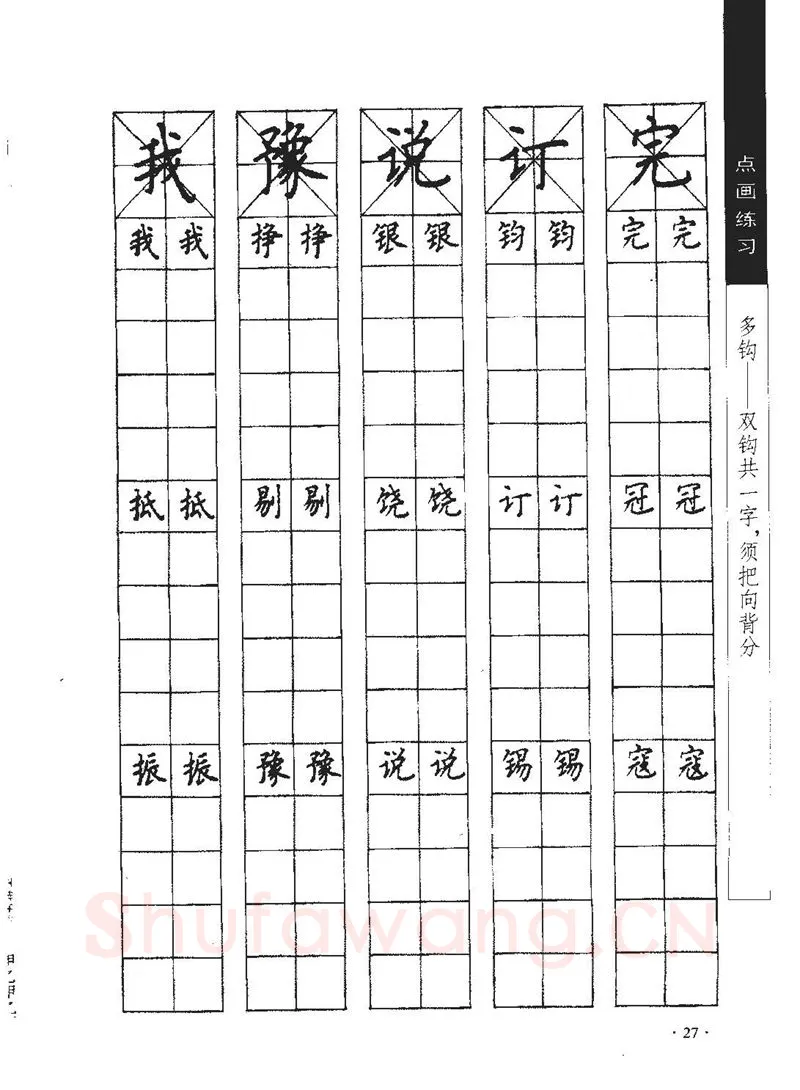 点画练习
多钩——双钩共一字，须把向背分
完
完完
冠冠
寇寇
订
钧钧
订订
锡锡
说
银银
饶饶
说说
豫
挣挣
剔剔
豫豫
我
我我
抵抵
振振
Shufawang.CN
·27·